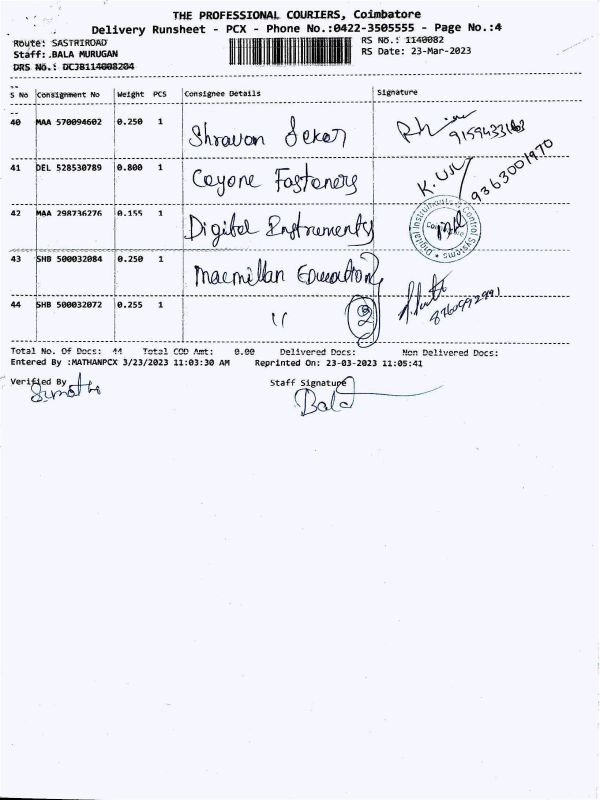 THE PROFESSIONAL COURIERS, Coimbatore
Delivery Runsheet - PCX - Phone No.:0422-3505555 - Page No.:4
Route: SASTRIROAD
RS No.: 1140082
Staff:.BALA MURUGAN
RS Date: 23-Mar-2023
DRS No.: DCJB114008204
S No Consignment No Weight PCS Consignee Details Signature
40 MAA 570094602 0.250 1 Shravan Sekar
41 DEL 528530789 0.800 1 Ceyone Fasteners
K. 9363001970
42 MAA 298736276 0.155 1 Digital Instruments
Digital Instruments & Control Systems
43 SHB 500032084 0.250 1 Macmillan Education
44 SHB 500032072 0.255 1 " 2
Total No. Of Docs: 44 Total COD Amt: 0.00 Delivered Docs: Non Delivered Docs:
Entered By :MATHANPCX 3/23/2023 11:03:30 AM Reprinted On: 23-03-2023 11:05:41
Verified By Staff Signature
Bala